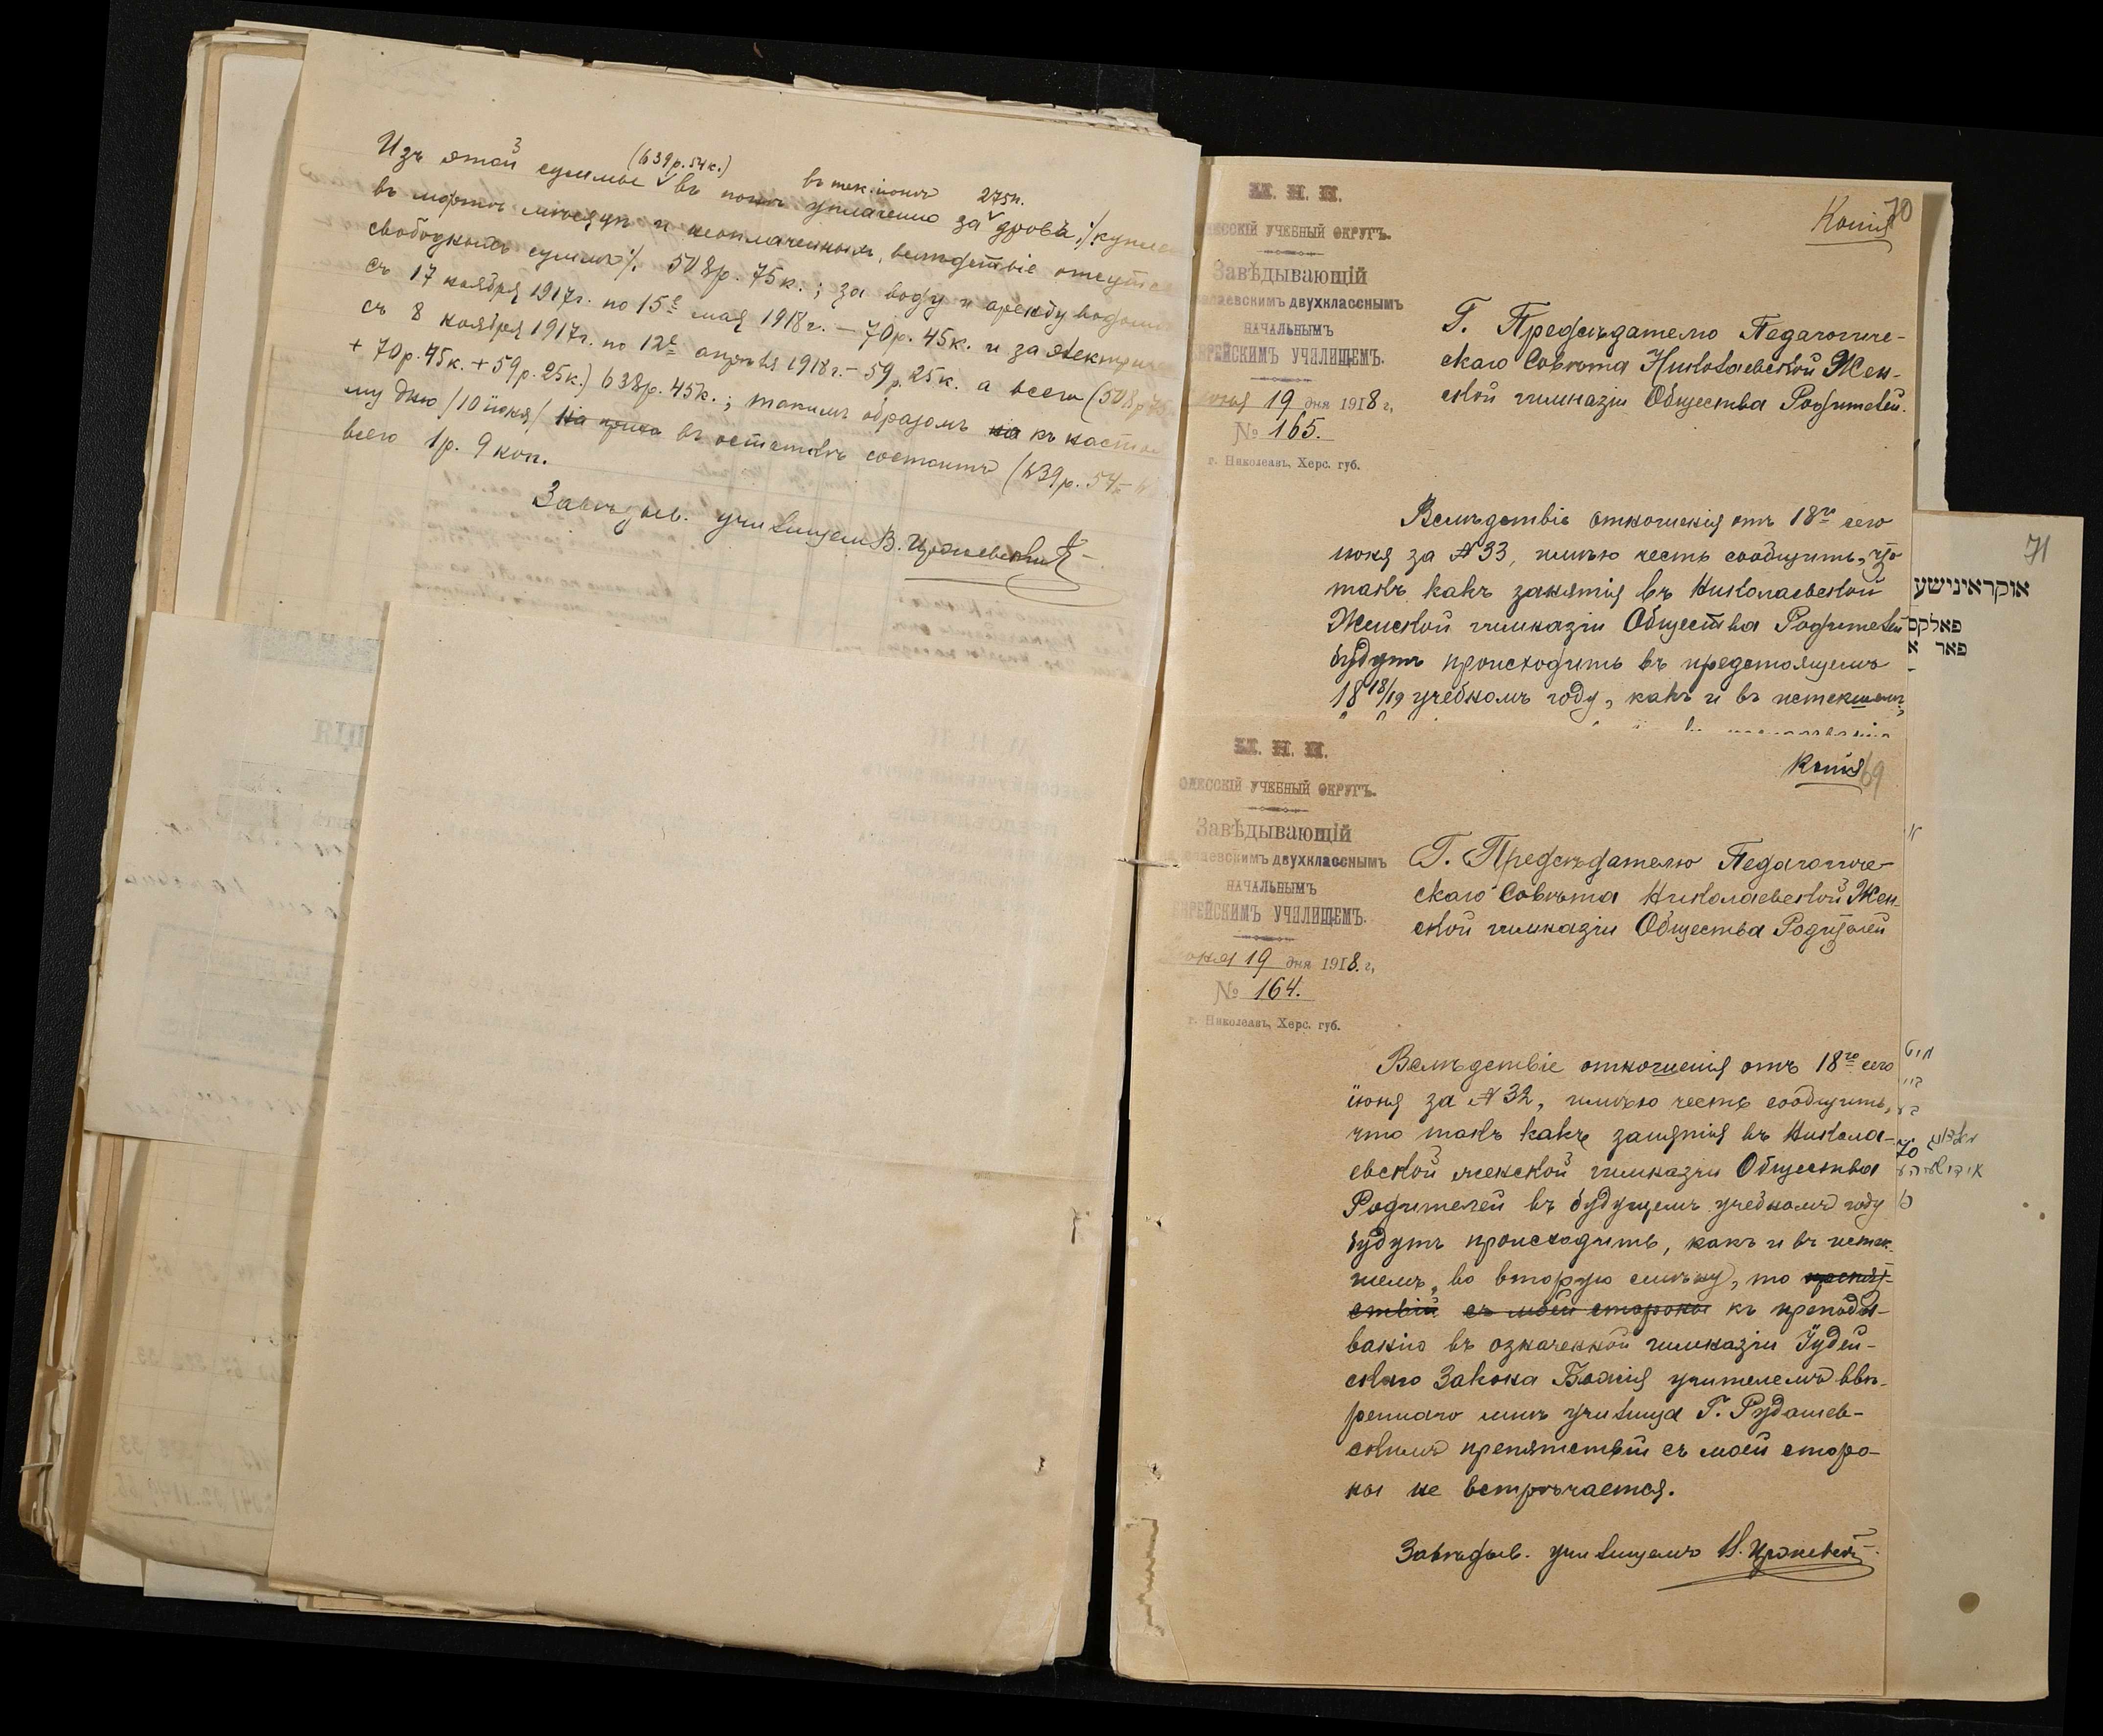 Изъ этой суммы (639р. 54к.) въ тек. іюнѣ уплачено за 275п. дрова ⁒ купле
въ мартѣ мѣсяцѣ и неоплаченныя, вслѣдствіе отсутст
свободныхъ суммъ ⁒ 508р. 75к.; за воду и аренду водом
съ 17 ноября 1917г. по 15е мая 1918г. – 70р. 45к. и за электрич
съ 8 ноября 1917г. по 12е апрѣля 1918г. – 59р. 25к. а всего (508р 75
+ 70р. 45к. + 59р. 25к.) 638р. 45к.; такимъ образомъ на къ насто
му дню /10 іюня/ въ остаткѣ состоитъ (639р. 54
всего 1р. 9 коп.
Завѣдыв. училищем В.
М. Н. П.
ДЕССКІЙ УЧЕБНЫЙ ОКРУГЪ.
Завѣдывающій
лаевскимъ двухкласснымъ
НАЧАЛЬНЫМЪ
РЕЙСКИМЪ УЧИЛИЩЕМЪ.
іюня 19 дня 1918 г,
№ 165.
г. Николаевъ, Херс. губ.
Копія
70
Г. Предсѣдателю Педагогиче-
скаго Совѣта Николаевской Жен-
ской гимназіи Общества Родителей.
Вслѣдствіе отношенія отъ 18го сего
іюня за № 33, имѣю честь сообщить, что
такъ какъ занятія въ Николаевской
Женской гимназіи Общества Родителей
будутъ происходить въ предстоящемъ
18 18/19 учебномъ году, какъ и въ истекшемъ,
М. Н. П.
ОДЕССКІЙ УЧЕБНЫЙ ОКРУГЪ.
Завѣдывающій
лаевскимъ двухкласснымъ
НАЧАЛЬНЫМЪ
РЕЙСКИМЪ УЧИЛИЩЕМЪ.
юня 19 дня 1918. г,
№ 164.
г. Николаевъ, Херс. губ.
Копія
69
Г. Предсѣдателю Педагогиче-
скаго Совѣта Николаевской Жен-
ской гимназіи Общества Родителей
Вслѣдствіе отношенія отъ 18го сего
іюня за № 32, имѣю честь сообщить,
что такъ какъ занятія въ Никола-
евской женской гимназіи Общества
Родителей въ будущемъ учебномъ году
будутъ происходить, какъ и въ истек-
шемъ, во вторую смѣну, то препят-
ствій съ моей стороны къ препода-
ванію въ означенной гимназіи Іудей-
скаго Закона Божія учителемъ ввѣ-
реннаго мнѣ училища Г. Рудашев-
скимъ препятствій съ моей сторо-
ны не встрѣчается.
Завѣдыв. училищемъ
71
אוקראינישע
פאלקס
פאר א
70